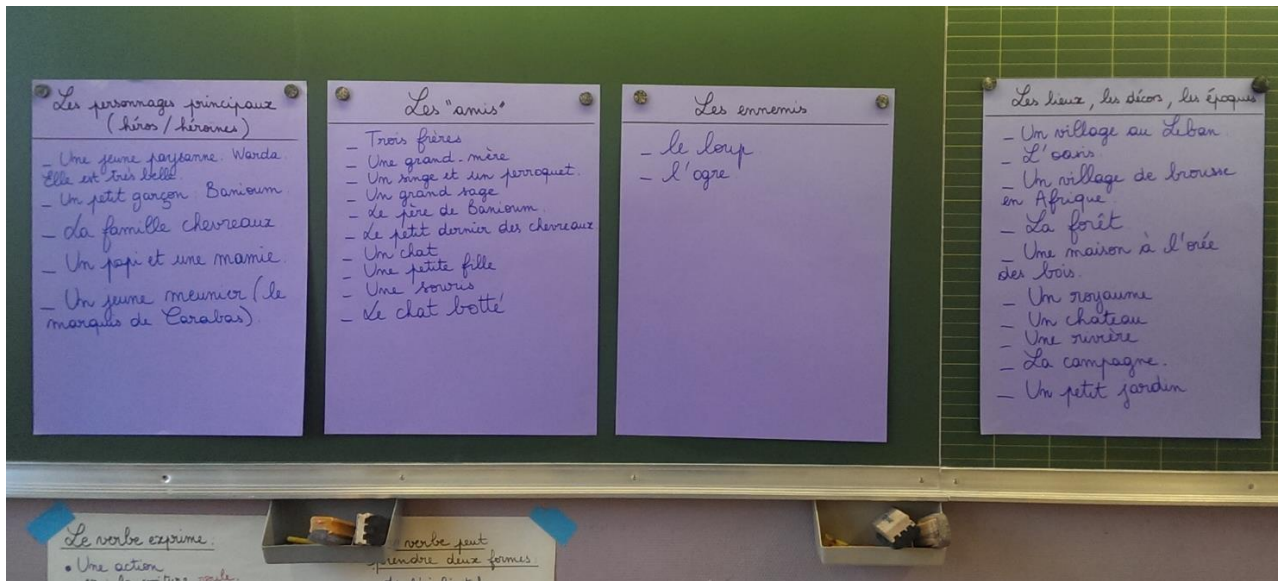 Les personnages principaux
(héros / héroïnes)
_ Une jeune paysanne. Warda.
Elle est très belle.
_ Un petit garçon : Banioum.
_ La famille chevreaux
_ Un papi et une mamie.
_ Un jeune meunier (le
marquis de Carabas).
Les "amis"
_ Trois frères
_ Une grand-mère
_ Un singe et un perroquet.
_ Un grand sage
_ Le père de Banioum.
_ Le petit dernier des chevreaux
_ Un chat
_ Une petite fille
_ Une souris
_ Le chat botté
Les ennemis
_ le loup
_ l'ogre
Les lieux, les décors, les époques
_ Un village au Liban.
_ L'oasis.
_ Un village de brousse
en Afrique.
_ La forêt
_ Une maison à l'orée
des bois.
_ Un royaume
_ Un chateau
_ Une rivière
_ La campagne.
_ Un petit jardin
Le verbe exprime :
• Une action
verbe peut
prendre deux formes :